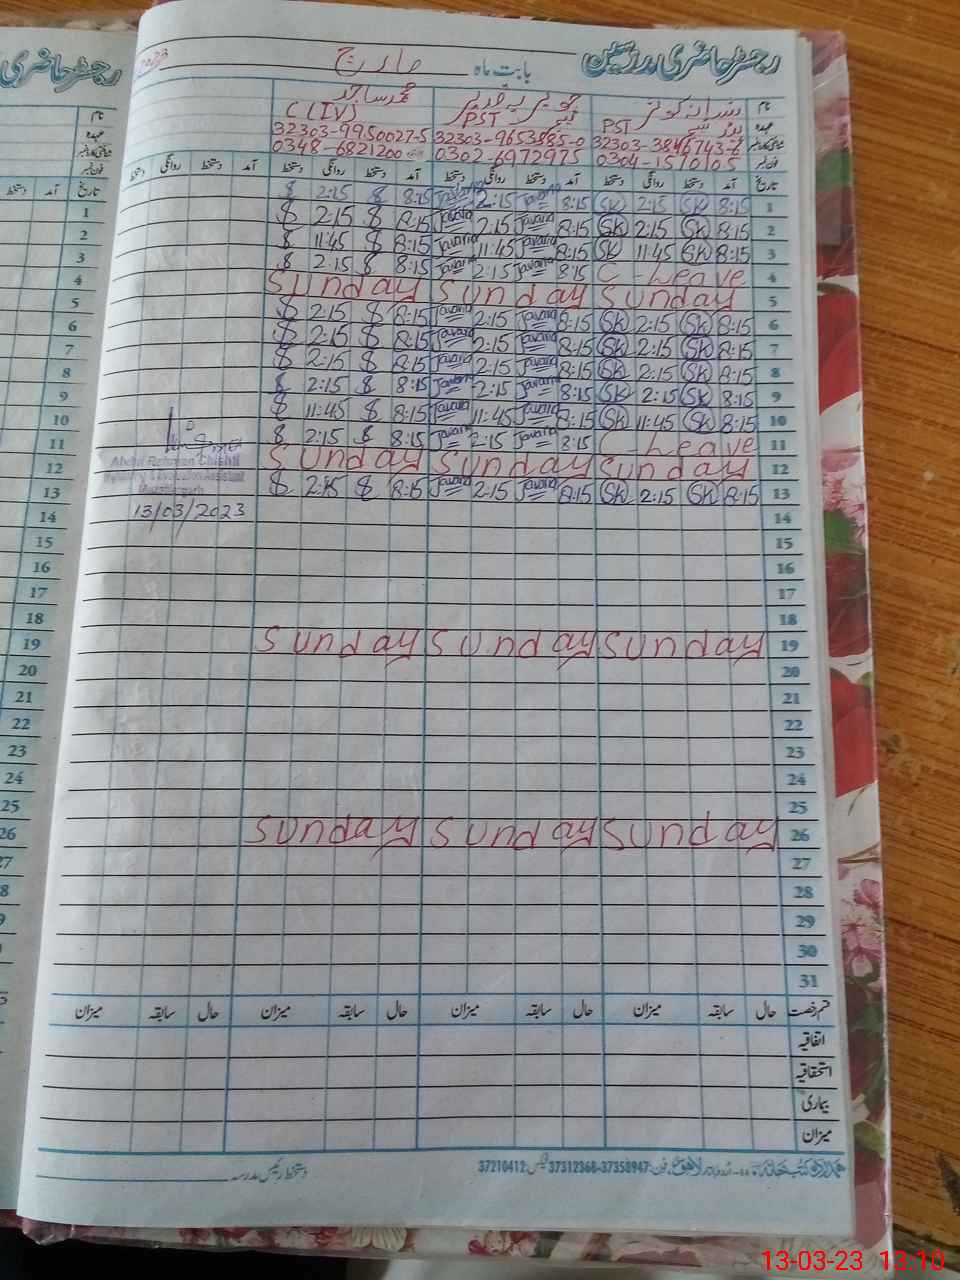 رجسٹر حاضری مدرسین
بابت ماہ مارچ 2023
نام محمد ساجد
عہدہ PST PST C(IV)
شناختی کارڈ نمبر 32303-3846743-6 32303-9653885-0 32303-9950027-5
فون نمبر 0304-1590105 0302-6972975 0348-6821200
تاریخ آمد دستخط روانگی دستخط آمد دستخط روانگی دستخط آمد دستخط روانگی دستخط آمد دستخط روانگی دستخط
$ 2:15 $ 8:15 Javaria 2:15 Javaria 8:15 SK 2:15 SK 8:15 1
$ 2:15 $ 8:15 Javaria 2:15 Javaria 8:15 SK 2:15 SK 8:15 2
$ 11:45 $ 8:15 Javaria 11:45 Javaria 8:15 SK 11:45 SK 8:15 3
$ 2:15 $ 8:15 Javaria 2:15 Javaria 8:15 C - Leave 4
Sunday Sunday Sunday 5
$ 2:15 $ 8:15 Javaria 2:15 Javaria 8:15 SK 2:15 SK 8:15 6
$ 2:15 $ 8:15 Javaria 2:15 Javaria 8:15 SK 2:15 SK 8:15 7
$ 2:15 $ 8:15 Javaria 2:15 Javaria 8:15 SK 2:15 SK 8:15 8
$ 2:15 $ 8:15 Javaria 2:15 Javaria 8:15 SK 2:15 SK 8:15 9
$ 11:45 $ 8:15 Javaria 11:45 Javaria 8:15 SK 11:45 SK 8:15 10
$ 2:15 $ 8:15 Javaria 2:15 Javaria 8:15 C - Leave 11
Abdul Rehman Chishti Sunday Sunday Sunday 12
Monitoring & Evaluation Assistant $ 2:15 $ 8:15 Javaria 2:15 Javaria 8:15 SK 2:15 SK 8:15 13
Muzaffargarh
13/03/2023 14
15
16
17
18
Sunday Sunday Sunday 19
20
21
22
23
24
25
Sunday Sunday Sunday 26
27
28
29
30
31
قسم رخصت حال سابقہ میزان حال سابقہ میزان حال سابقہ میزان حال سابقہ میزان
اتفاقیہ
استحقاقیہ
بیماری
میزان
فون: 37358947-37312368 فیکس: 37210412
دستخط رئیس مدرسہ
13-03-23 13:10
رجسٹر حاضری
نام
عہدہ
شناختی کارڈ نمبر
فون نمبر
تاریخ آمد دستخط
1
2
3
4
5
6
7
8
9
10
11
12
13
14
15
16
17
18
19
20
21
22
23
24
25
26
27